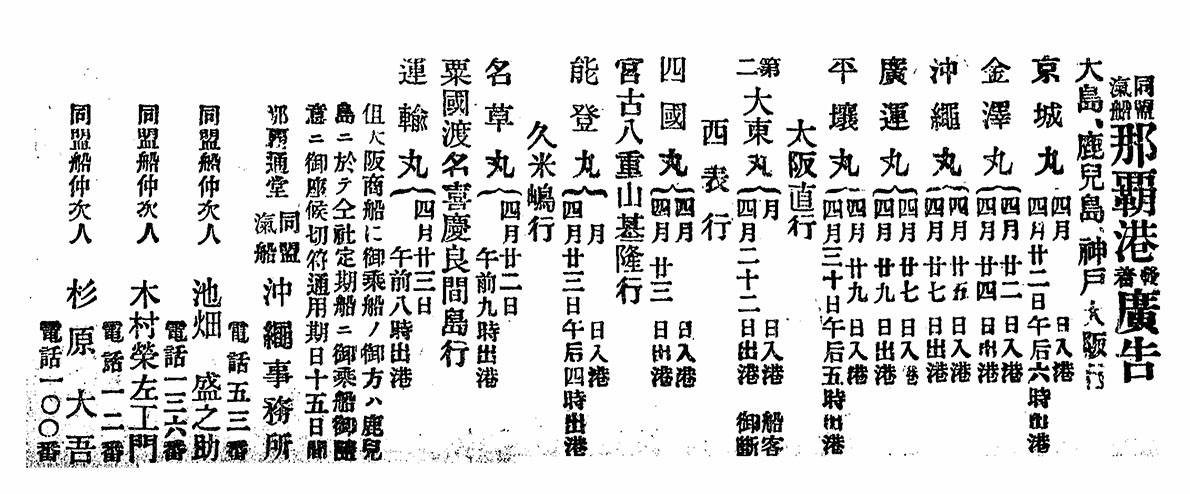 同盟汽船那覇港發着廣告
大島、鹿兒島、神戸大阪行
京城丸 四月 日入港
四月廿二日午后六時出港
金澤丸 四月廿二日入港
四月廿四日出港
沖繩丸 四月廿五日入港
四月廿七日出港
廣運丸 四月廿七日入港
四月廿九日出港
平壤丸 四月廿九日入港
四月三十日午后五時出港
大阪直行
第二大東丸 月 日入港 船客
四月二十二日出港 御斷
西表行
四國丸 四月 日入港
四月廿三日出港
宮古八重山基隆行
能登丸 月 日入港
四月廿三日午后四時出港
久米嶋行
名草丸 四月廿二日
午前九時出港
粟國渡名喜慶良間島行
運輸丸 四月廿三日
午前八時出港
但大阪商船に御乘船ノ御方ハ鹿兒
島ニ於テ仝社定期船ニ御乘船御隨
意ニ御座候切符通用期日十五日間
那覇通堂 同盟汽船 沖繩事務所
電話五三番
同盟船仲次人 池畑盛之助
電話一三六番
同盟船仲次人 木村榮左工門
電話一二番
同盟船仲次人 杉原大吾
電話一〇〇番